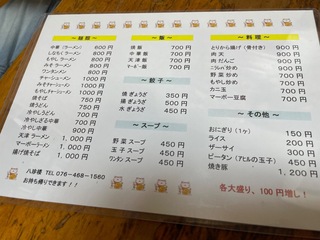 ～ 麺類 ～
中華（ラーメン） 600 円
しなちくラーメン 700 円
もやしラーメン 700 円
みそラーメン 700 円
ワンタンメン 800 円
チャーシューメン 900 円
もやしチャーシューメン 1,000 円
みそチャーシューメン 1,000 円
焼そば 750 円
焼うどん 750 円
冷やしざる中華 750 円
冷やし中華 900 円
天津ラーメン 1,000 円
マーボーラーメン 1,000 円
揚げ焼そば 1,000 円
～ 飯 ～
焼飯 700 円
中華飯 700 円
天津飯 700 円
マーボー飯 700 円
～ 餃子 ～
焼ぎょうざ 350 円
揚ぎょうざ 500 円
水ぎょうざ 450 円
～ スープ ～
野菜スープ 450 円
玉子スープ 450 円
ワンタンスープ 450 円
～ 料理 ～
とりから揚げ（骨付き） 900 円
肉天 900 円
肉だんご 900 円
ニラレバ炒め 900 円
野菜炒め 700 円
もやし炒め 700 円
カニ玉 700 円
マーボー豆腐 700 円
～ その他 ～
おにぎり（1ヶ） 150 円
ライス 200 円
ザーサイ 300 円
ピータン（アヒルの玉子） 450 円
焼き豚 1,200 円
各大盛り、100円増し！
TEL 076-468-1560
お持ち帰りできます！！